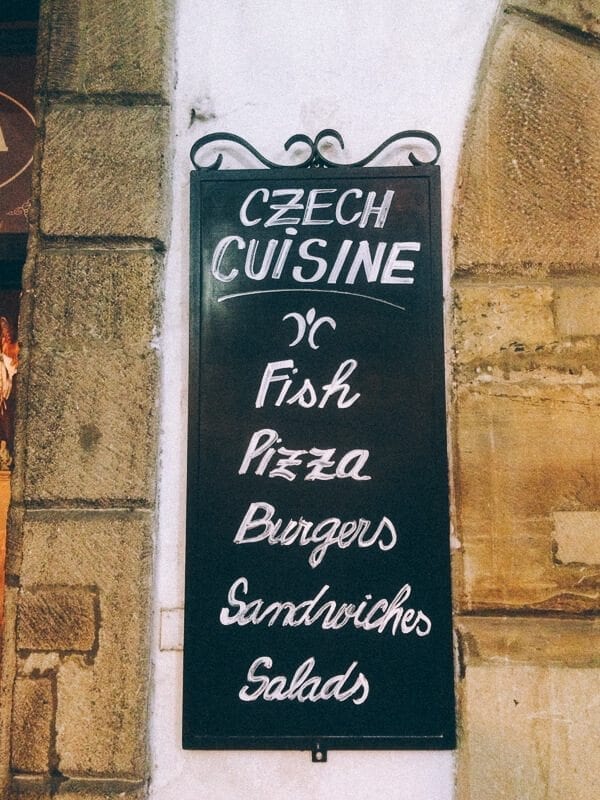 CZECH
CUISINE
Fish
Pizza
Burgers
Sandwiches
Salads